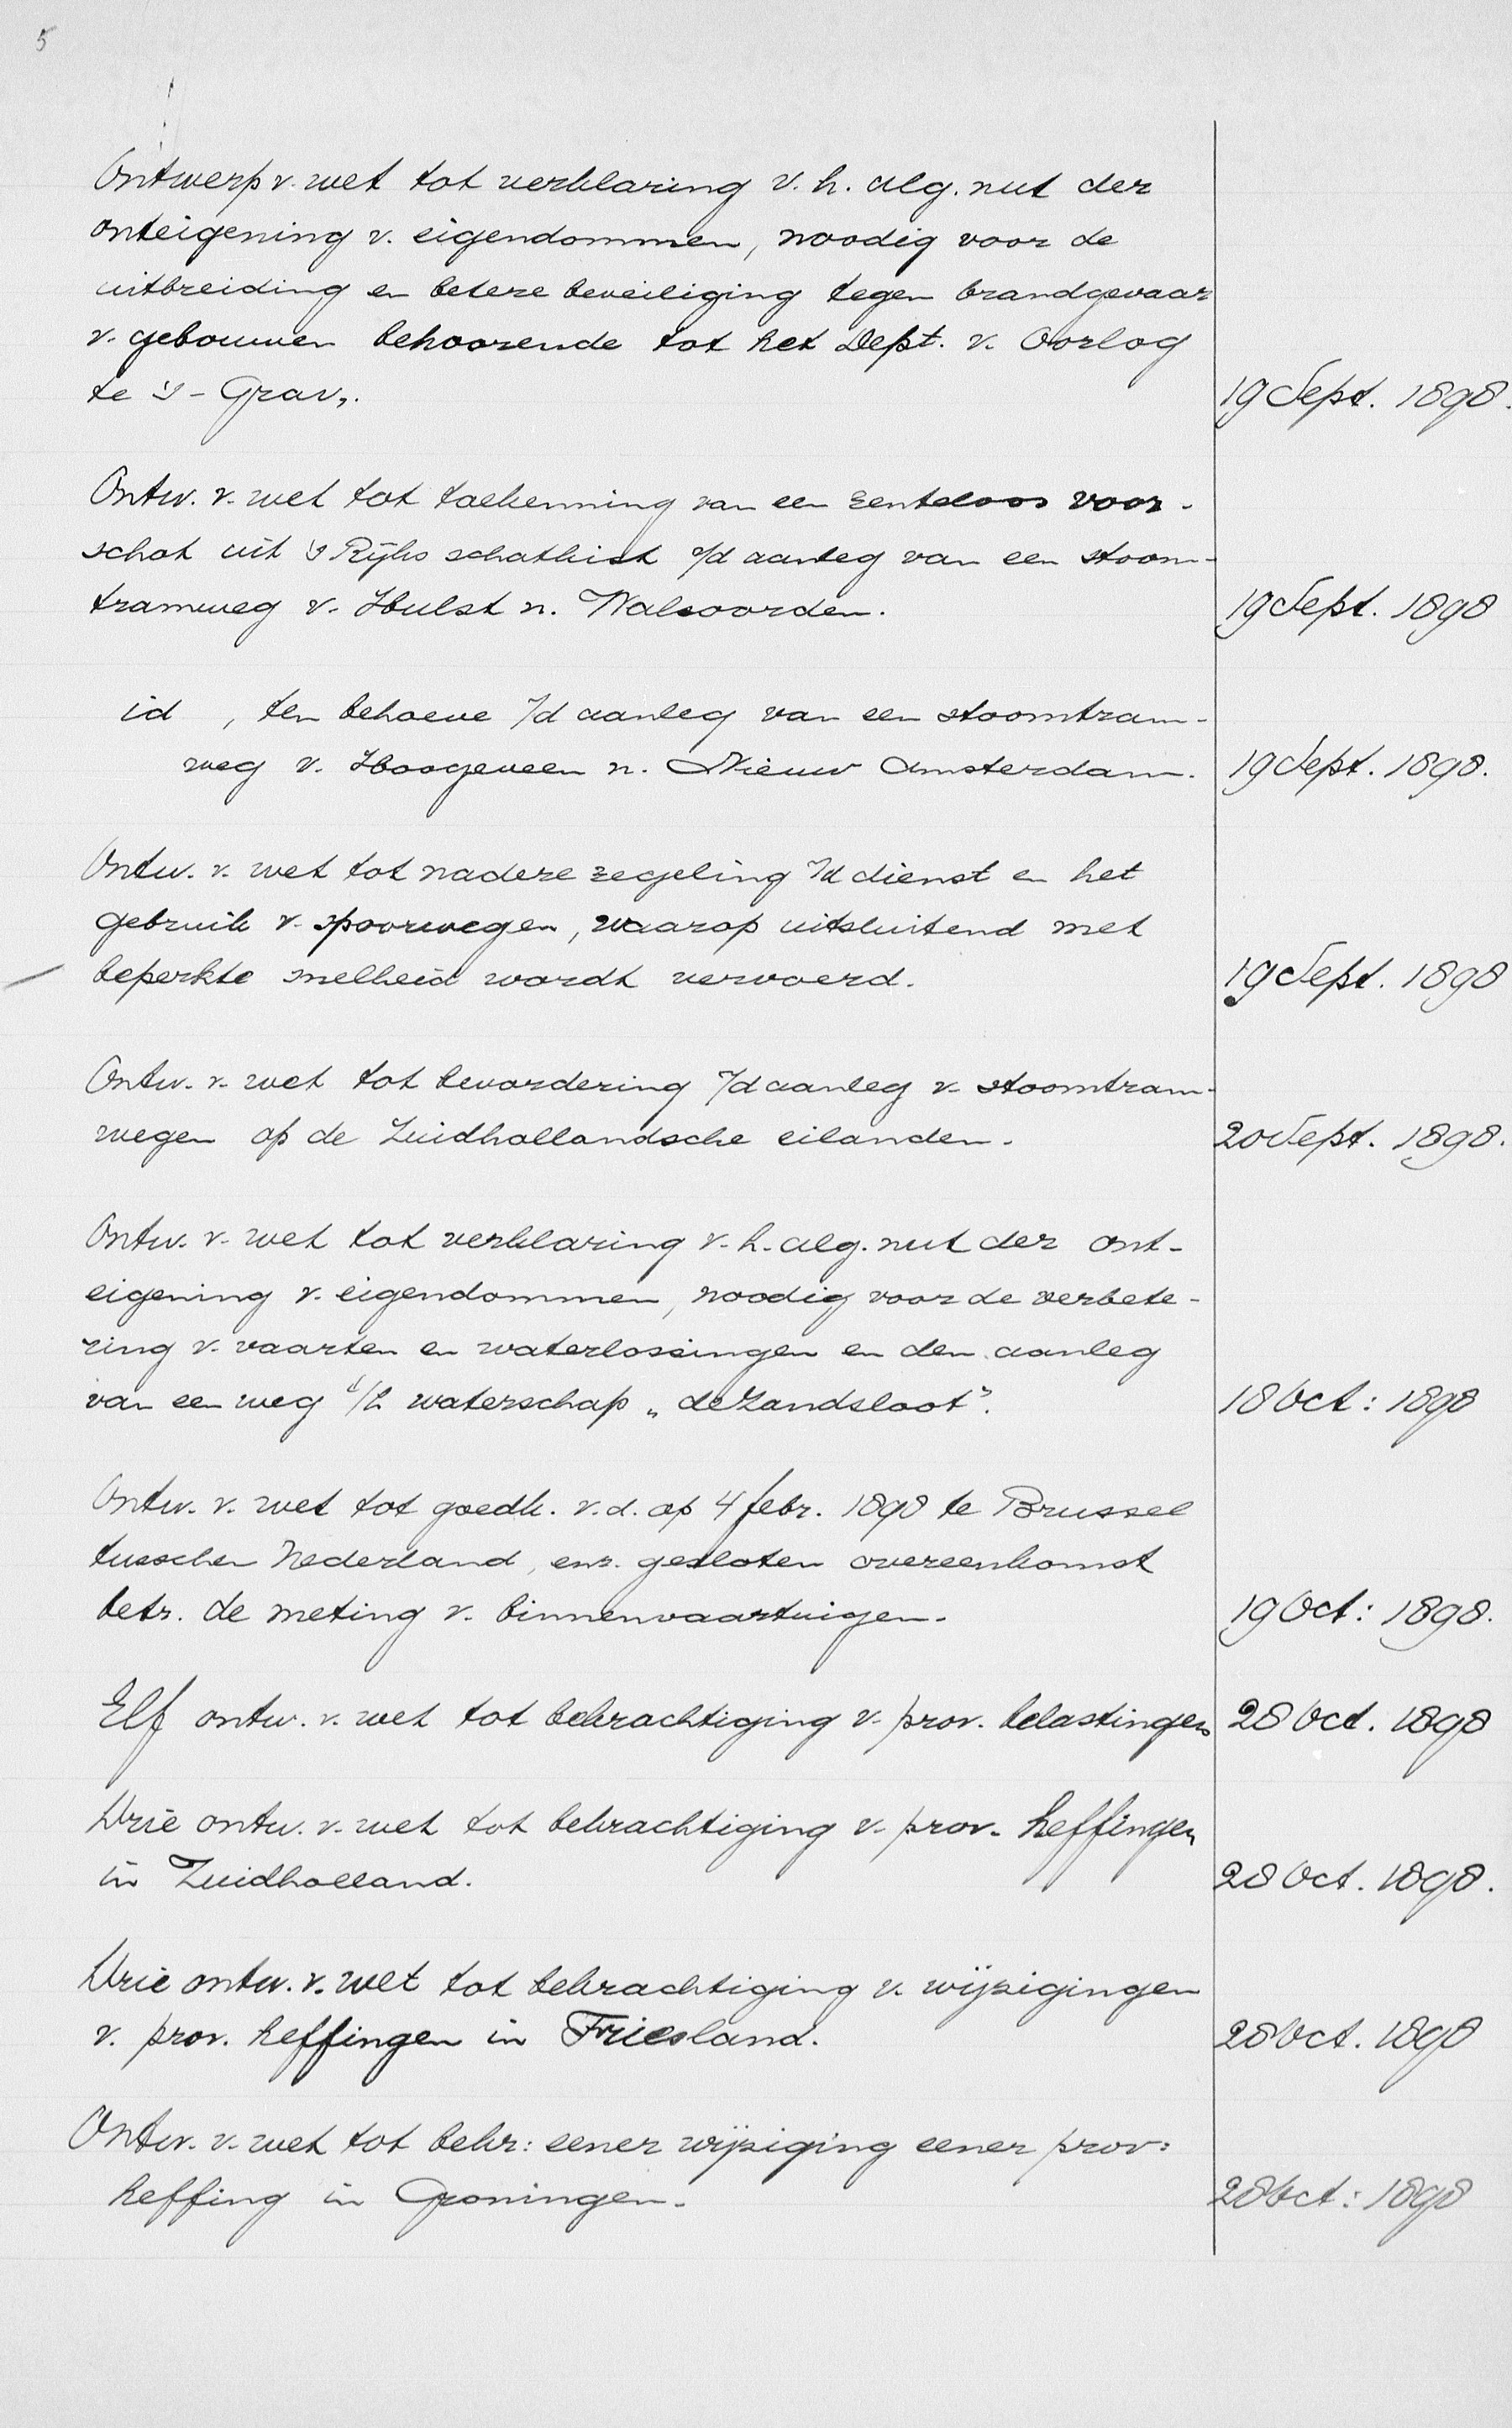 5
Ontwerp v. wet tot verklaring v. h. alg. nut der
onteigening v. eigendommen, noodig voor de
uitbreiding en betere beveiliging tegen brandgevaar
v. gebouwen behoorende tot het Dept. v. Oorlog
te 's-Grav,. 19 Sept. 1898.
Ontw. v. wet tot toekenning van een renteloos voor-
schot uit 's Rijks schatkist v/d aanleg van een stoom-
tramweg v. Hulst n. Walsoorden. 19 Sept. 1898
id , ten behoeve v/d aanleg van een stoomtram-
weg v. Hoogeveen n. Nieuw Amsterdam. 19 Sept. 1898.
Ontw. v. wet tot nadere regeling v/d dienst en het
gebruik v. spoorwegen, waarop uitsluitend met
beperkte snelheid wordt vervoerd. 19 Sept. 1898
Ontw. v. wet tot bevordering v/d aanleg v. stoomtram-
wegen op de Zuidhollandsche eilanden. 20 Sept. 1898.
Ontw. v. wet tot verklaring v. h. alg. nut der ont-
eigening v. eigendommen, noodig voor de verbete-
ring v. vaarten en waterlossingen en den aanleg
van een weg i/h waterschap „de Zandsloot". 18 Oct: 1898
Ontw. v. wet tot goedk. v. d. op 4 febr. 1898 te Brussel
tusschen Nederland, enz. gesloten overeenkomst
betr. de meting v. binnenvaartuigen. 19 Oct: 1898.
Elf ontw. v. wet tot bekrachtiging v. prov. belastingen 28 Oct. 1898
Drie ontw. v. wet tot bekrachtiging v. prov. heffingen
in Zuidholland. 28 Oct. 1898.
Drie ontw. v. wet tot bekrachtiging v. wijzigingen
v. prov. heffingen in Friesland. 28 Oct. 1898
Ontw. v. wet tot bekr: eener wijziging eener prov:
heffing in Groningen. 28 Oct: 1898